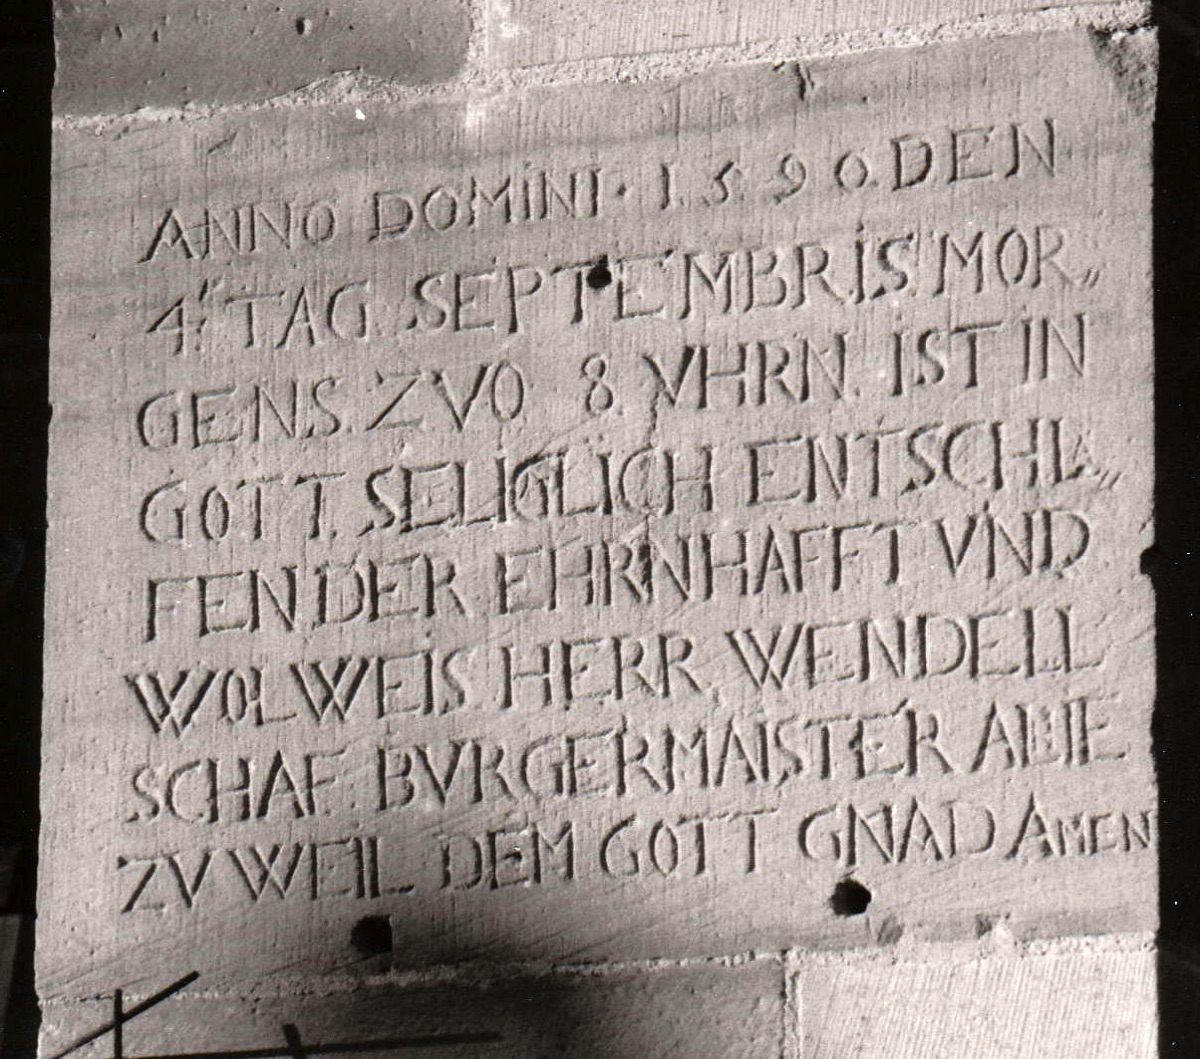 ANNO DOMINI · 1590. DEN
4" TAG SEPTEMBRIS MOR„
GENS. ZVO 8 VHRN. IST IN
GOTT. SELIGLICH ENTSCHLA„
FEN DER EHRNHAFFT VND
WOLWEIS HERR, WENDELL
SCHAF. BVRGERMAISTER ALIE
ZV WEIL DEM GOTT GNAD AMEN